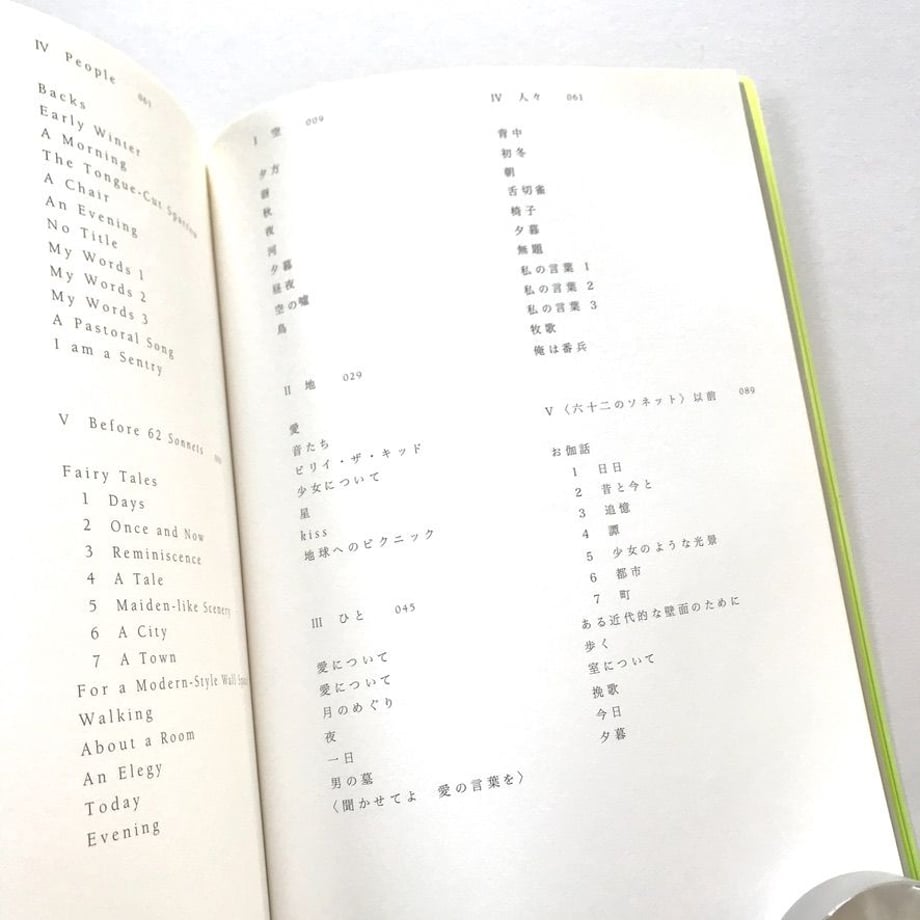 IV People 061
Backs
Early Winter
A Morning
The Tongue-Cut Sparrow
A Chair
An Evening
No Title
My Words 1
My Words 2
My Words 3
A Pastoral Song
I am a Sentry
V Before 62 Sonnets 089
Fairy Tales
1 Days
2 Once and Now
3 Reminiscence
4 A Tale
5 Maiden-like Scenery
6 A City
7 A Town
For a Modern-Style Wall
Walking
About a Room
An Elegy
Today
Evening
I 空 009
夕方
秋
夜
河
夕暮
昼夜
空の嘘
鳥
II 地 029
愛
音たち
ビリイ・ザ・キッド
少女について
星
kiss
地球へのピクニック
III ひと 045
愛について
愛について
月のめぐり
夜
一日
男の墓
〈聞かせてよ 愛の言葉を〉
IV 人々 061
背中
初冬
朝
舌切雀
椅子
夕暮
無題
私の言葉 1
私の言葉 2
私の言葉 3
牧歌
俺は番兵
V 〈六十二のソネット〉以前 089
お伽話
1 日日
2 昔と今と
3 追憶
4 譚
5 少女のような光景
6 都市
7 町
ある近代的な壁面のために
歩く
室について
挽歌
今日
夕暮